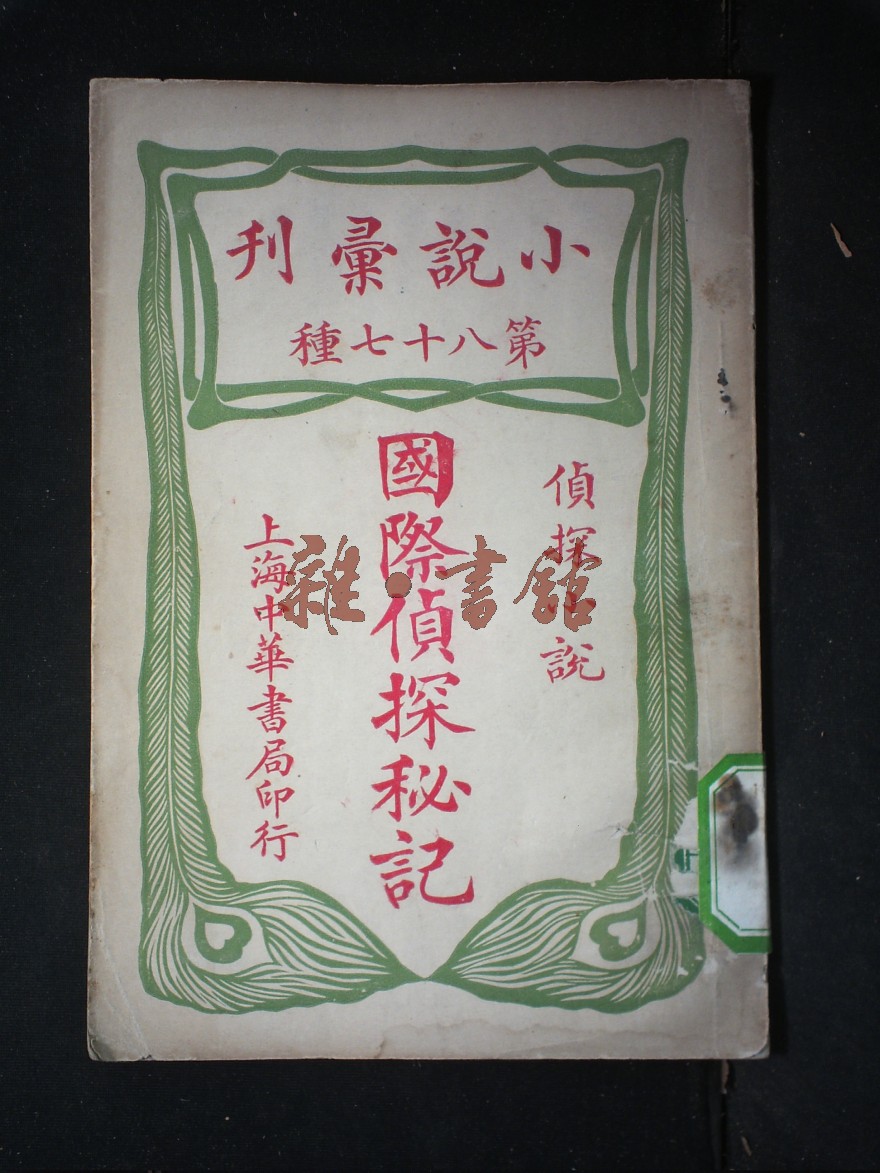 小說彙刊
第八十七種
偵探小說
國際偵探秘記
上海中華書局印行
雜·書館